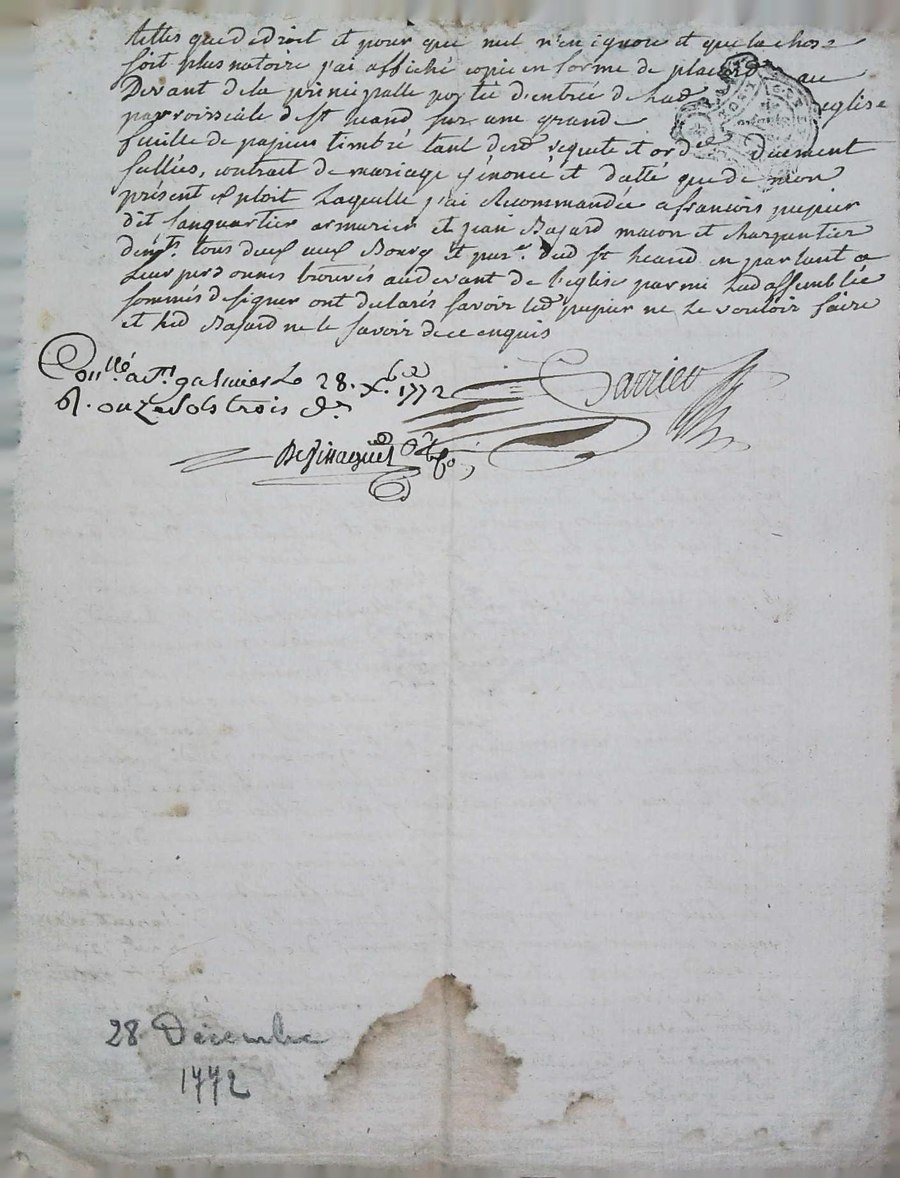 telles que de droit et pour que nul n'en ignore et que la chose
soit plus notoire j'ai affiché copie en forme de placard au
Devant de la principalle porte d'entrée de lad église
parroissiale de st heand sur une grande
feuille de papier timbré tant desd requete et ord Duement
sellées, contrait de mariage y énoncé et datté que de mon
présent exploit Laquelle j'ai Recommandée a francois pupier
dit sanquartier armurier et jean Bajard macon et charpentier
demts. tous deux aux Bourg et parr. dud st heand en parlant a
Leur personnes trouvés audevant de l'eglise parmi Lad assemblée
sommés de signer ont declarés savoir led pupier ne Le vouloir faire
et led Bajard ne le savoir de ce enquis
Conllé a St galmier Le 28. Xbre 1772
R. onze sols trois drs
Sarrieu
28 Décembre
1772